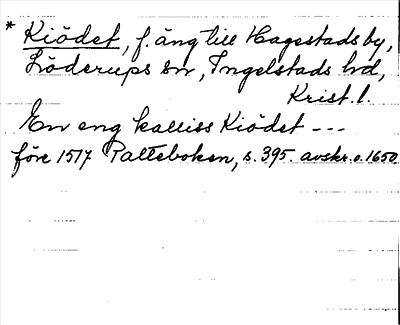 * Kiödet, f. äng till Hagestads by,
Löderups sn, Ingelstads hd,
Krist. l.
En eng kalliss Kiödet ---
före 1517 Palteboken, s. 395. avskr. o. 1650